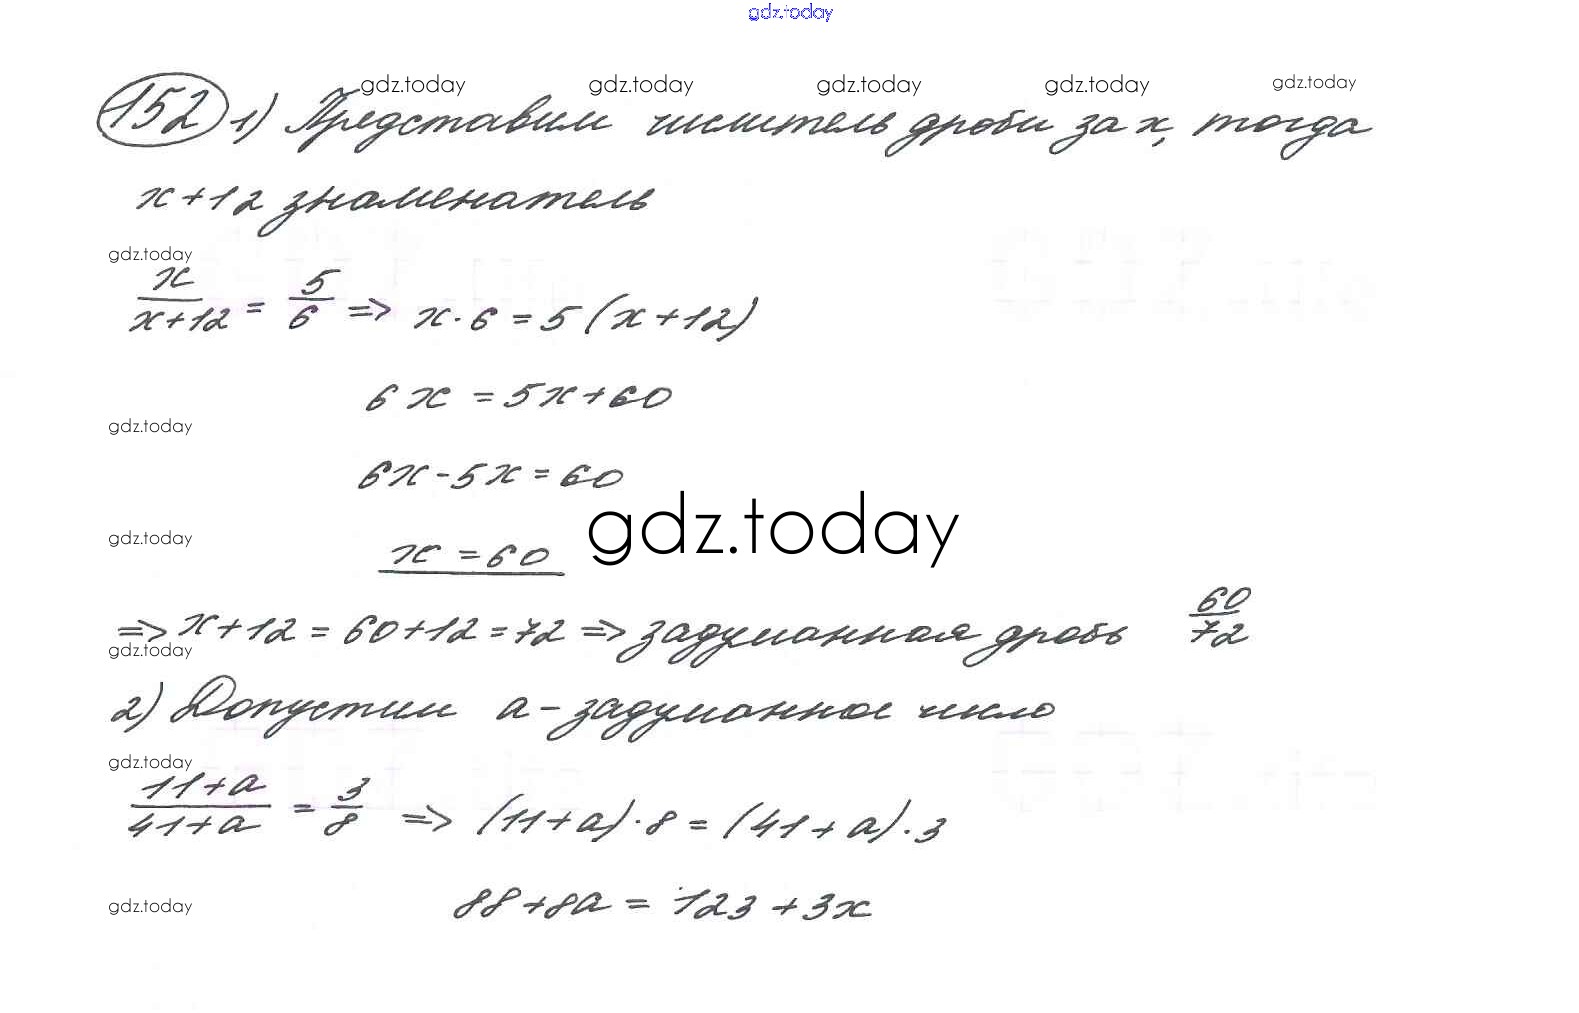 gdz.today
gdz.today gdz.today gdz.today gdz.today gdz.today
152 1) Представим числитель дроби за x, тогда
x+12 знаменатель
gdz.today
x/(x+12) = 5/6 => x·6 = 5(x+12)
6x = 5x+60
gdz.today
6x-5x=60
gdz.today
gdz.today
x = 60
=> x+12 = 60+12 = 72 => задуманная дробь 60/72
gdz.today
2) Допустим a - задуманное число
gdz.today
(11+a)/(41+a) = 3/8 => (11+a)·8 = (41+a)·3
88+8a = 123+3x
gdz.today